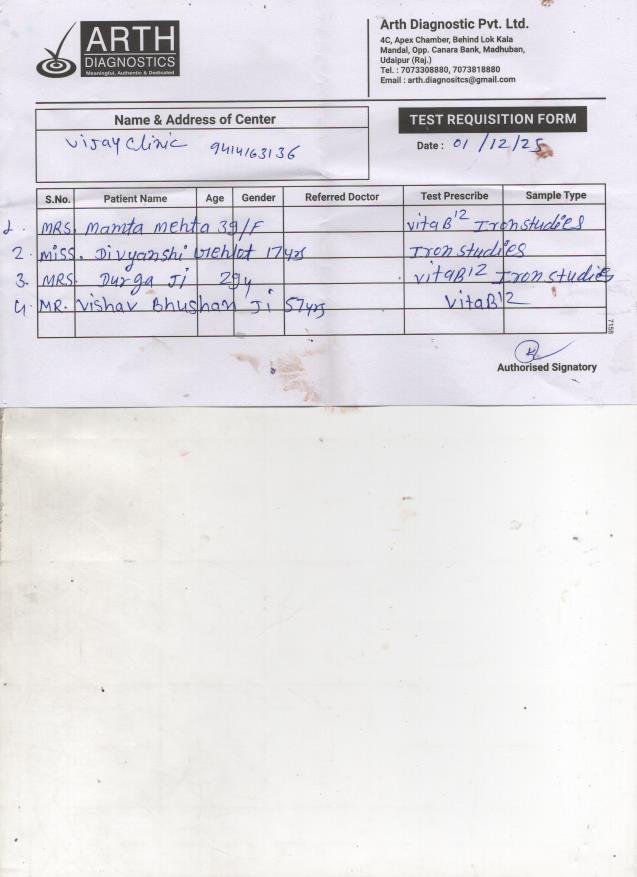 ARTH
DIAGNOSTICS
Meaningful, Authentic & Dedicated
Arth Diagnostic Pvt. Ltd.
4C, Apex Chamber, Behind Lok Kala
Mandal, Opp. Canara Bank, Madhuban,
Udaipur (Raj.)
Tel. : 7073308880, 7073818880
Email : arth.diagnositcs@gmail.com
Name & Address of Center
Vijay Clinic 9414163136
TEST REQUISITION FORM
Date : 01/12/25
S.No. Patient Name Age Gender Referred Doctor Test Prescribe Sample Type
1. MRS. Mamta Mehta 39/F VitaB12 Iron studies
2. MISS. Divyanshi Gehlot 17yrs Iron studies
3. MRS. Durga Ji 29y VitaB12 Iron studies
4. MR. Vishav Bhushan Ji 57yrs VitaB12
7158
Authorised Signatory